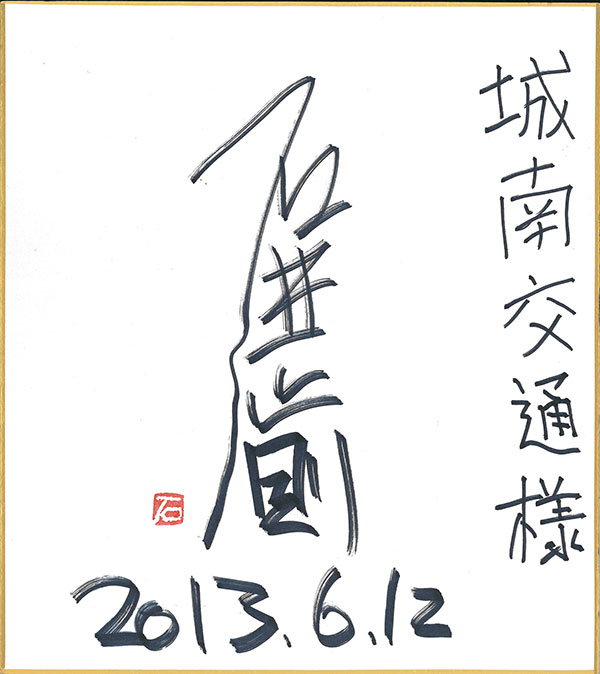 城南交通様
石井正則
石
2013.6.12